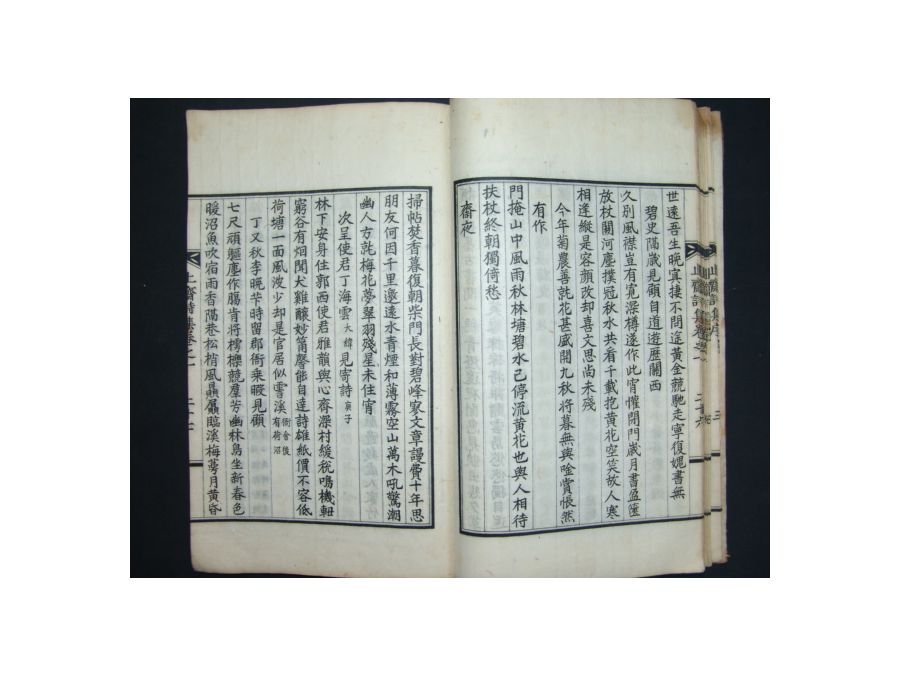 世遠吾生晚寘捿不問途黃金競馳走寧復娓書無
碧史隔歲見顧自道遊歷關西
久別風襟豈有寬深樽遂作此宵懽閉門歲月書盈篋
放杖關河塵撲冠秋水共看千載抱黃花空笑故人寒
相逢縱是容顔改却喜文思尚未殘
今年菊農善託花甚盛開九秋將暮無與唫賞悵然
有作
門掩山中風雨秋林塘碧水已停流黃花也與人相待
扶杖終朝獨倚愁
齋夜
掃帖焚香暮復朝柴門長對碧峰寥文章謾費十年思
朋友何因千里邀遠水青煙和薄霧空山萬木吼驚潮
幽人方乾梅花夢翠羽殘星未住宵
次呈使君丁海雲大緯見寄詩庚子
林下安身住郭西使君雅韻與心齊深村緩稅鳴機軸
窮谷有烟聞犬雞釀妙莆罄能自達詩雄紙價不容低
荷塘一面風波少却是官居似霅溪衙舍後有荷沼
丁又秋李晩華時留郡衙乘暇見顧
七尺頑軀塵作腸肯將樗櫟競羣芳幽林鳥坐新春色
暖沼魚吹宿雨香隔巷松梢風贔屭臨溪梅萼月黃昏
止齋詩集卷之一
二十七
止齋詩集卷之一
二十六
止齋詩集序
三